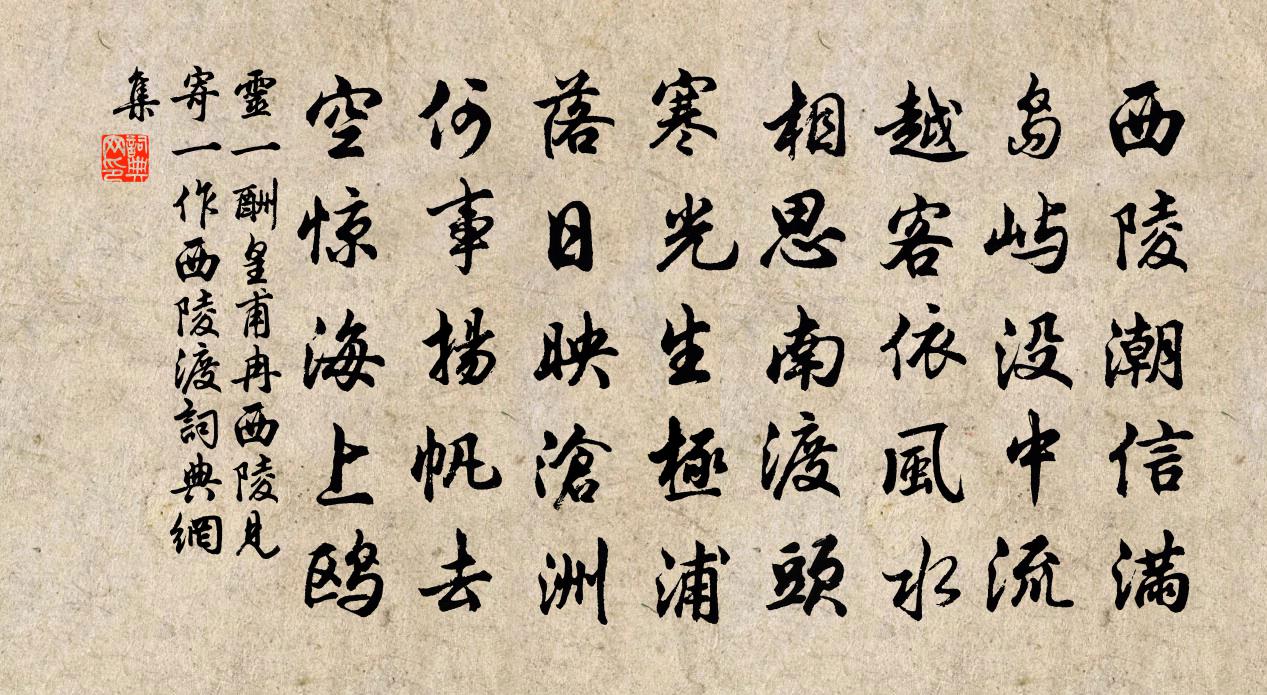 西陵潮信满
岛屿没中流
越客依風水
相思南渡頭
寒光生極浦
落日映滄洲
何事揚帆去
空惊海上鸥
靈一酬皇甫冉西陵見
寄一作西陵渡詞典網
集
詞典
网印